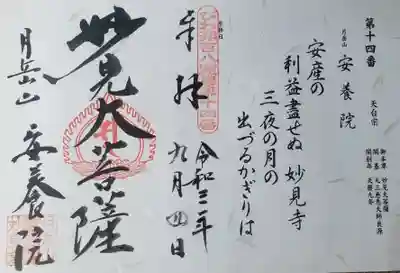 第十四番
月岳山 安養院 天台宗
御本尊 妙見大菩薩
開基
開創年
安産の
利益盡せぬ 妙見寺
三夜の月の
出づるかぎりは
奉拝
令和三年
九月四日
妙見大菩薩
月岳山 安養院